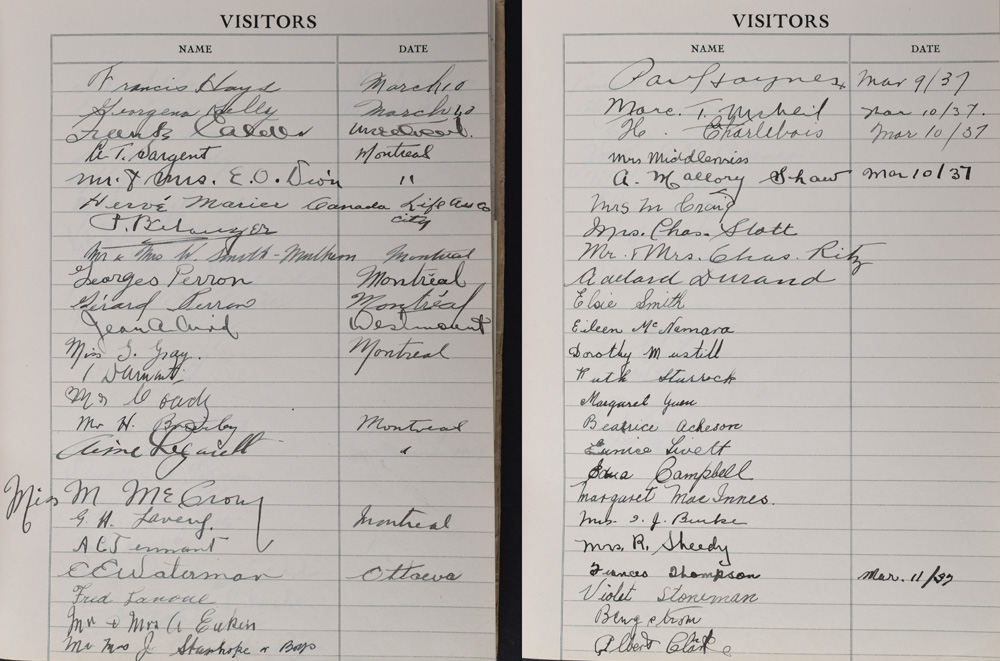 VISITORS
NAME DATE
Francis Hayes March 10
Kelly March 10
Frank
A. T. Sargent Montreal
Mr. & Mrs. E. O. Dion "
Hervé Canada Life
P. Belanger city
Mr & Mrs W. Smith - Montreal
Georges Perron Montréal
Gérard Perron Montréal
Jean A. Westmount
Miss G. Gray. Montreal
Mrs Coady
Mr H. Montreal
Aimé "
Miss M McCrory
G. H. Montreal
A C Tennant
C E Waterman Ottawa
Fred Lanoue
Mr & Mrs A Eakin
Mr Mrs J Stanhope & Boys
VISITORS
NAME DATE
Paul Haynes Mar 9/37
Marc. T. McNeil Mar 10/37.
H. Charlebois Mar 10/37
Mrs
A. Mallory Shaw Mar 10/37
Mrs M Craig
Mrs. Chas. Stott
Mr. & Mrs. Chas. Ritz
Adelard Durand
Elsie Smith
Eileen McNamara
Dorothy Mustill
Ruth Sturrock
Margaret
Beatrice Acheson
Eunice Livett
Edna Campbell
Margaret MacInnes.
Mrs. J. Burke
Mrs. R. Sheedy
Frances Thompson Mar. 11/37
Violet Stoneman
Bengstrom
Albert Clark